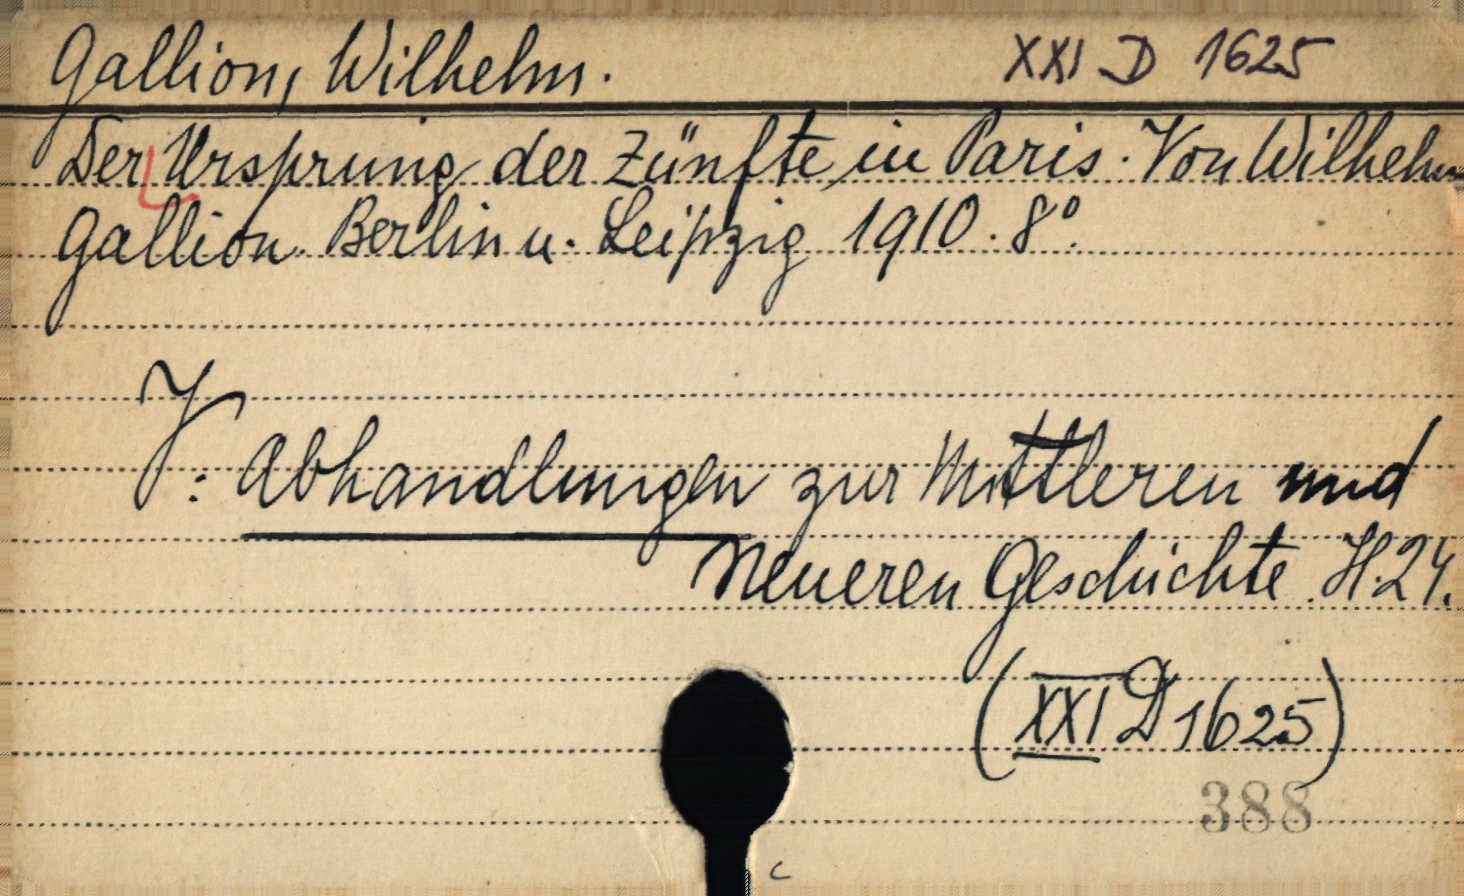 Gallion, Wilhelm. XXI D 1625
Der Ursprung der Zünfte in Paris. Von Wilhelm
Gallion. Berlin u. Leipzig 1910. 8°.
V: Abhandlungen zur Mittleren und
Neueren Geschichte. H.24.
(XXI D 1625)
388
c